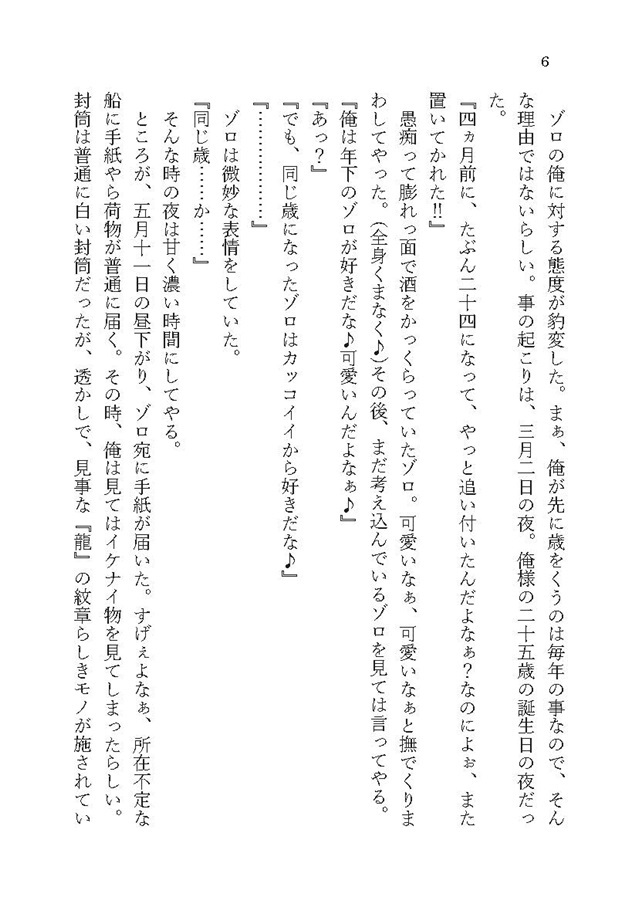 6
ゾロの俺に対する態度が豹変した。まぁ、俺が先に歳をくうのは毎年の事なので、そん
な理由ではないらしい。事の起こりは、三月二日の夜。俺様の二十五歳の誕生日の夜だっ
た。
『四ヵ月前に、たぶん二十四になって、やっと追い付いたんだよなぁ？なのによぉ、また
置いてかれた!!』
愚痴って膨れっ面で酒をかっくらっていたゾロ。可愛いなぁ、可愛いなぁと撫でくりま
わしてやった。（全身くまなく♪）その後、まだ考え込んでいるゾロを見ては言ってやる。
『俺は年下のゾロが好きだな♪可愛いんだよなぁ♪』
『あっ？』
『でも、同じ歳になったゾロはカッコイイから好きだな♪』
『………………』
ゾロは微妙な表情をしていた。
『同じ歳……か……』
そんな時の夜は甘く濃い時間にしてやる。
ところが、五月十一日の昼下がり、ゾロ宛に手紙が届いた。すげぇよなぁ、所在不定な
船に手紙やら荷物が普通に届く。その時、俺は見てはイケナイ物を見てしまったらしい。
封筒は普通に白い封筒だったが、透かしで、見事な『龍』の紋章らしきモノが施されてい